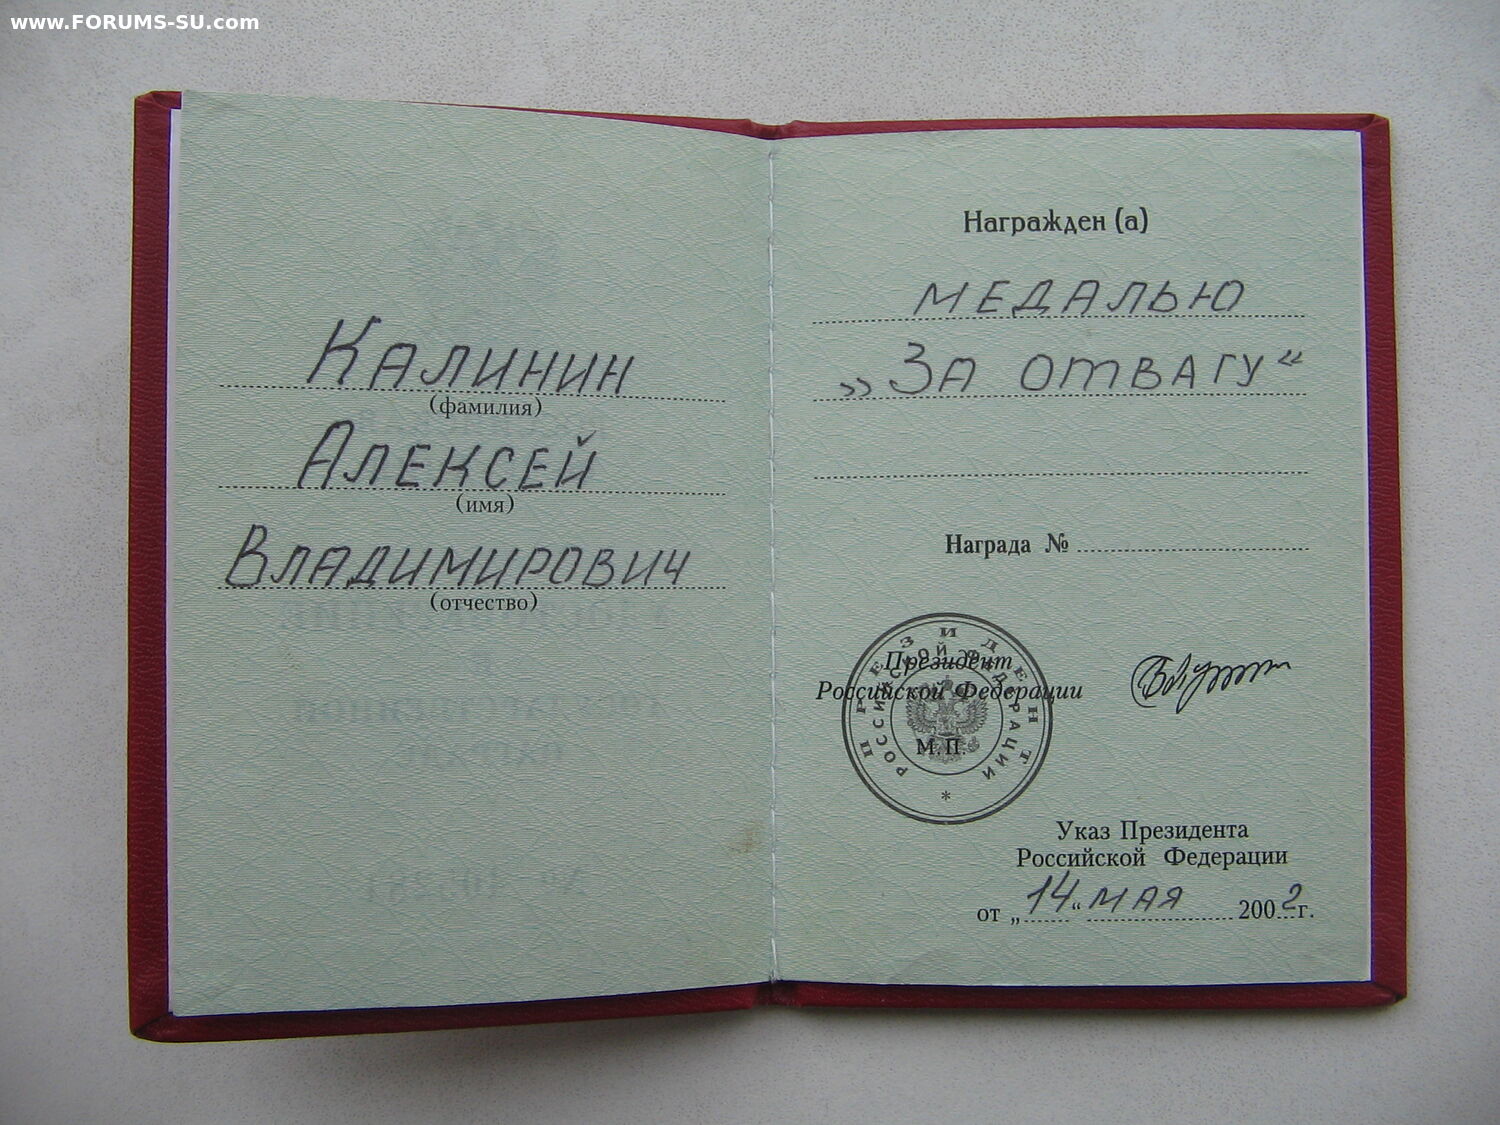 www.FORUMS-SU.com
Калинин
(фамилия)
Алексей
(имя)
Владимирович
(отчество)
Награжден (а)
медалью
„За отвагу“
Награда №
Президент
Российской Федерации
М.П.
ПРЕЗИДЕНТ
РОССИЙСКОЙ ФЕДЕРАЦИИ
*
Указ Президента
Российской Федерации
от „14“ мая 2002г.